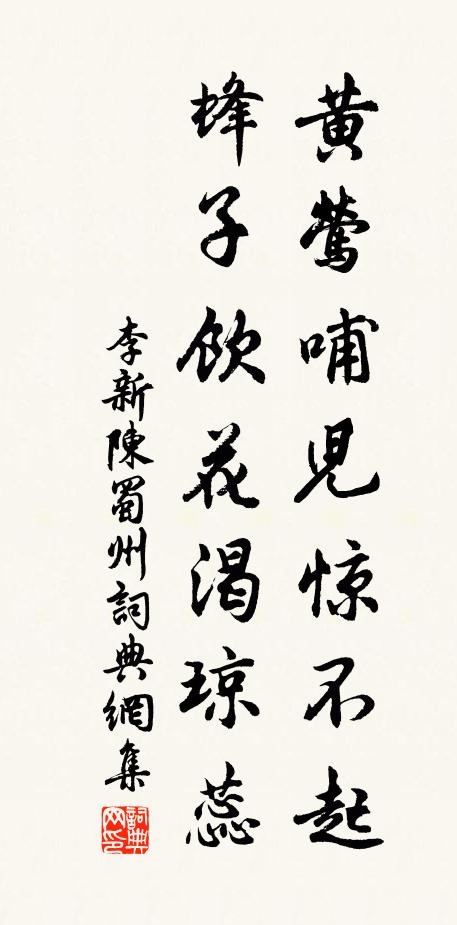 黄鶯哺児惊不起
蜂子飲花渴琼蕊
李新陳蜀州詞典網集
詞典网印